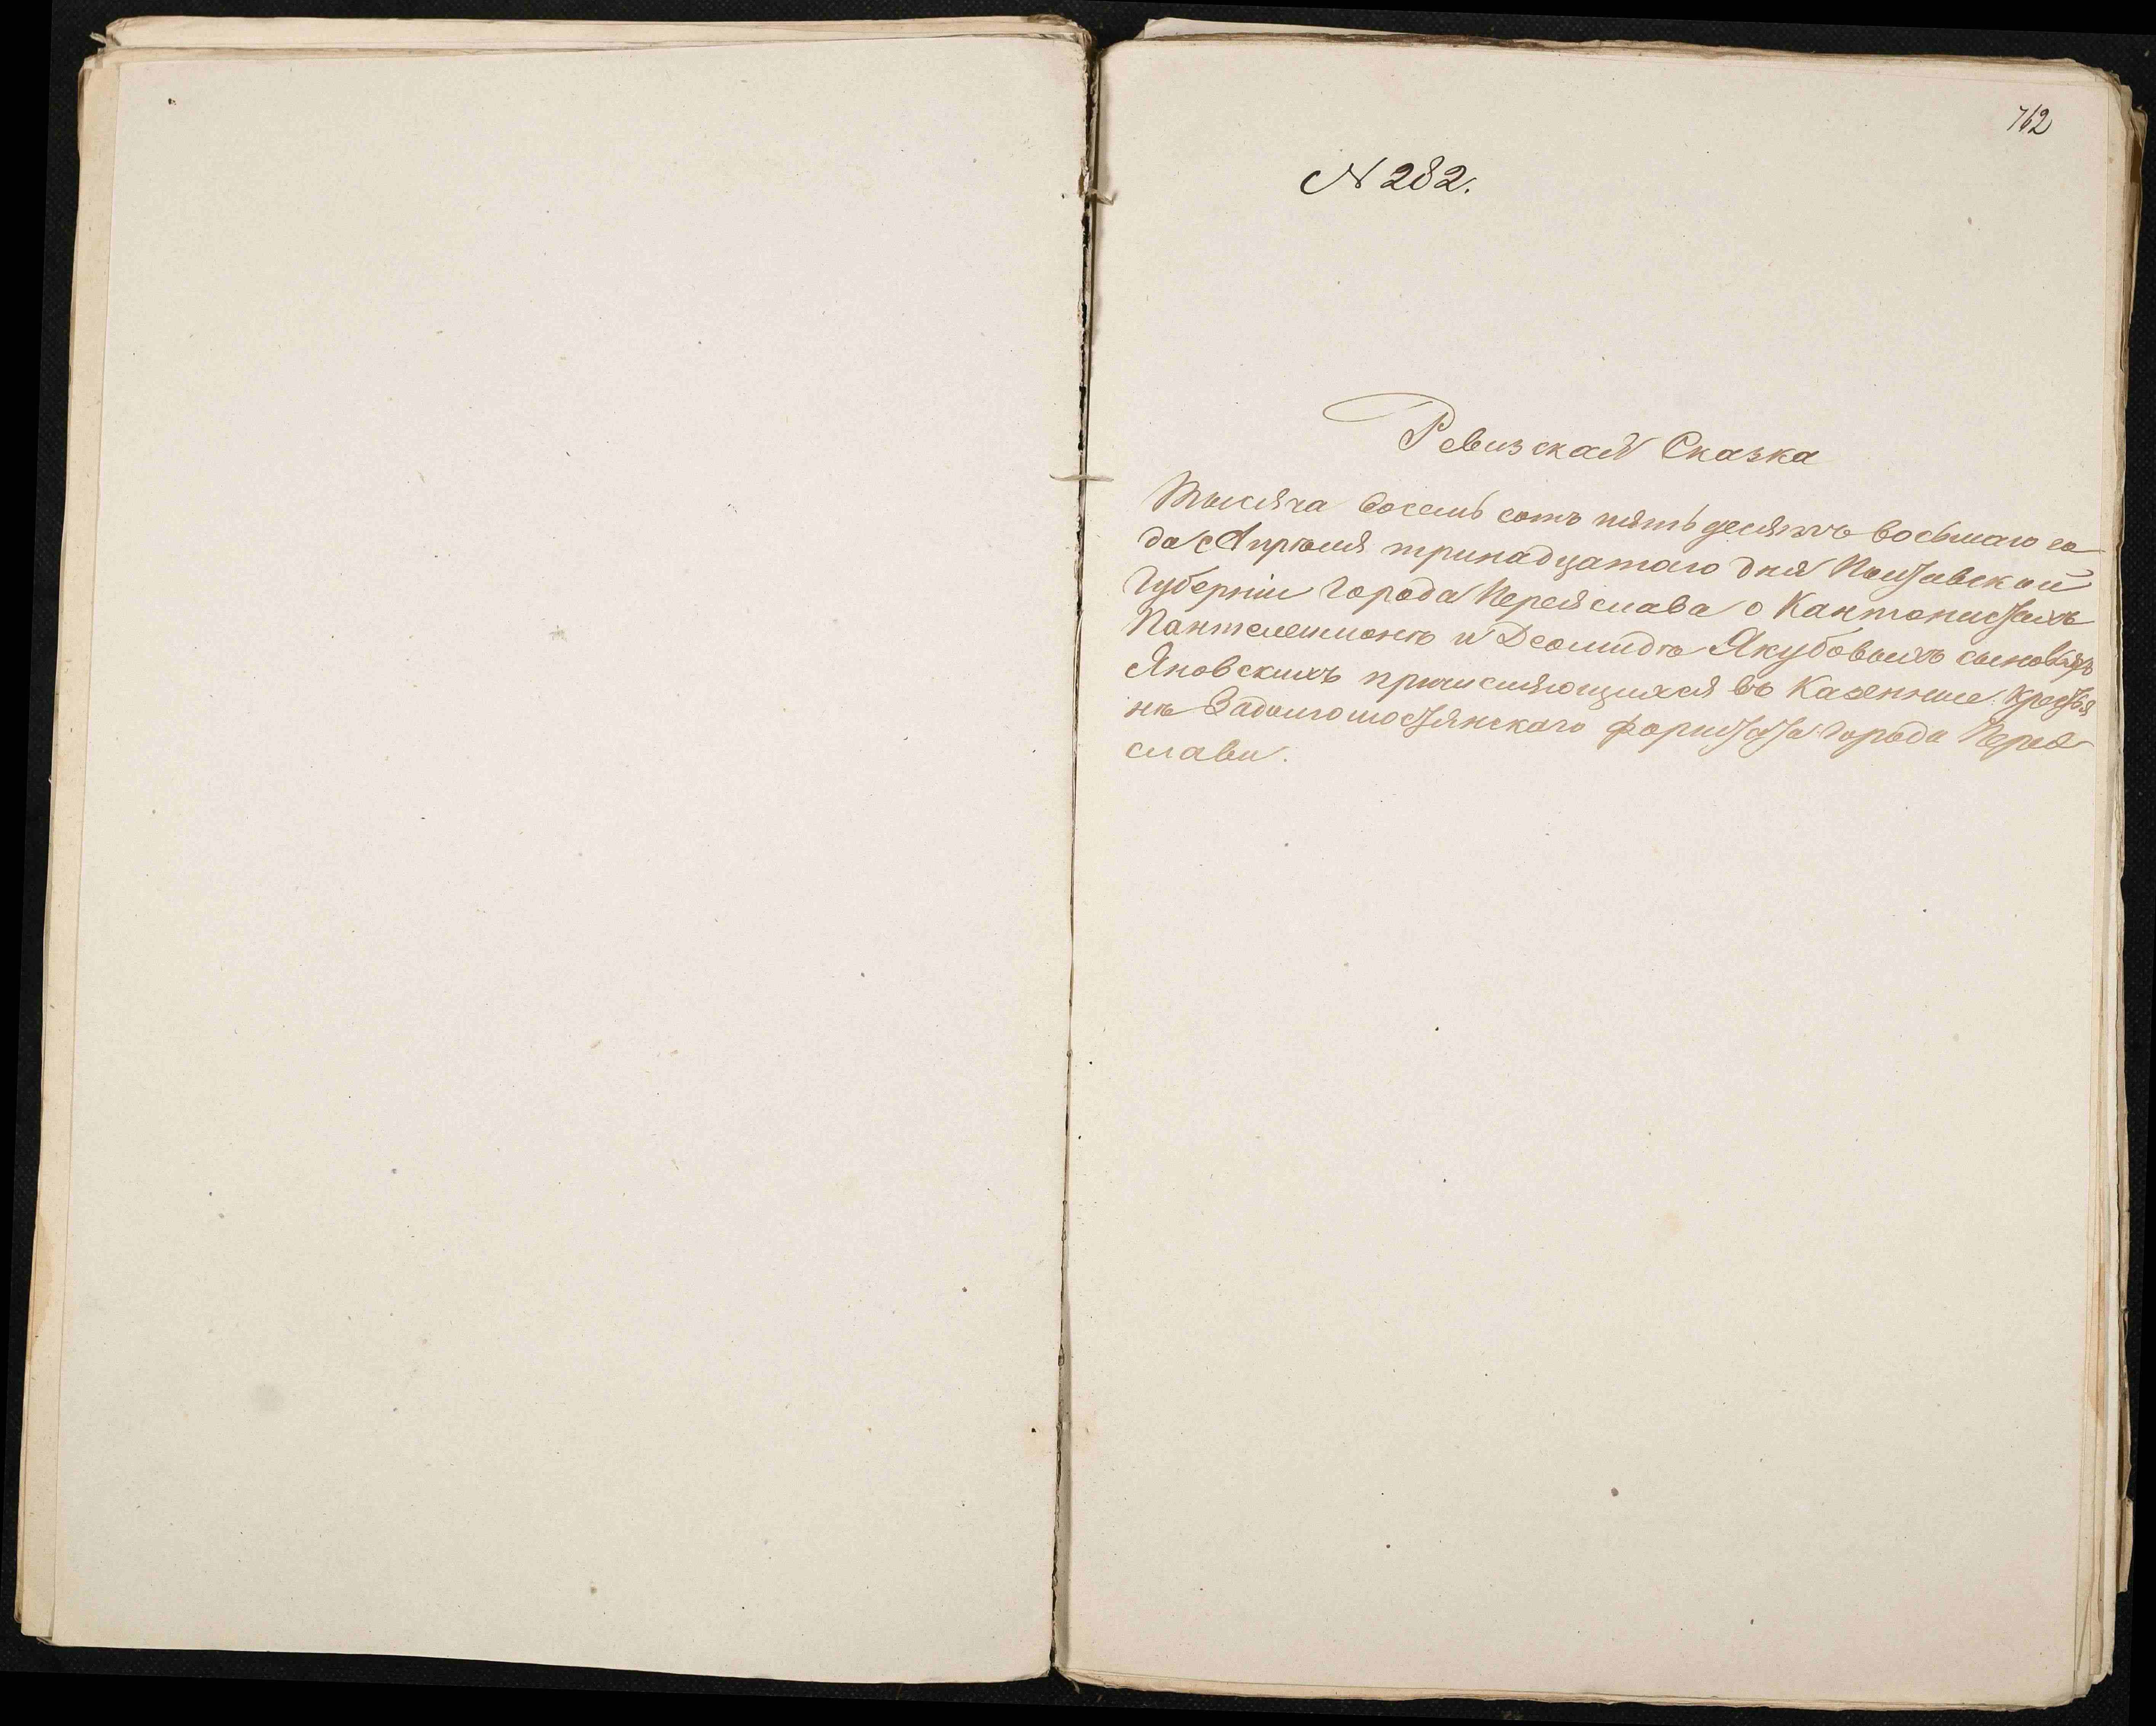 762
№ 282.
Ревизская Сказка
Тысяча восемь сотъ пять десятъ восьмаго го
да Апрѣля тринадцатаго дня Полтавской
Губерніи Города Переяслава о Кантонистахъ
Пантелеимонѣ и Деомидѣ Якубовыхъ сыновьяхъ
Яновскихъ причисляющихся въ Казенные Крестья
не Задолгомостянскаго форштата города Перея
слава.